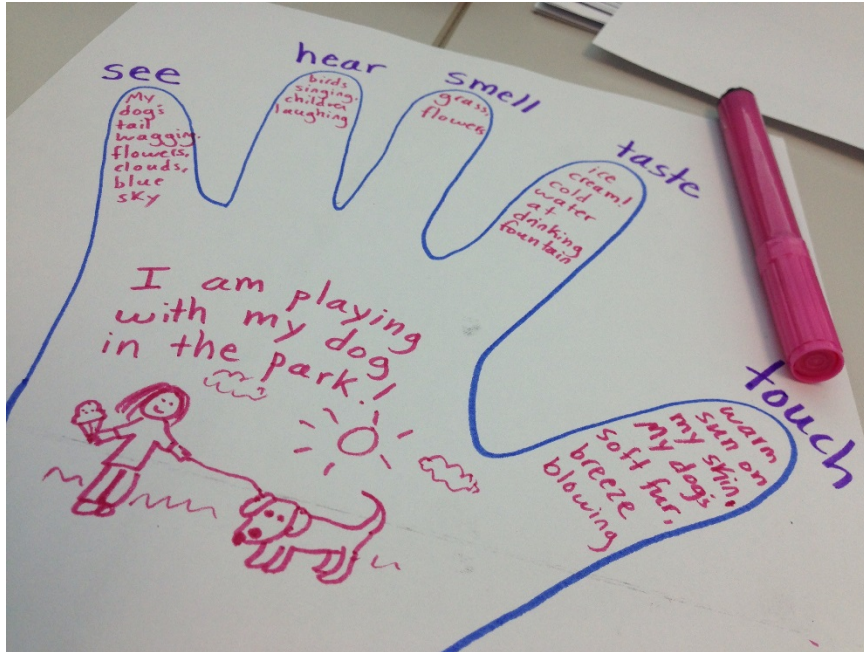 see
My
dog's
tail
wagging.
flowers,
clouds,
blue
sky
hear
birds
singing.
children
laughing
smell
grass,
flowers
taste
ice
cream!
cold
water
at
drinking
fountain
touch
warm
sun on
my skin,
My dog's
soft fur,
breeze
blowing
I am playing
with my dog
in the park!